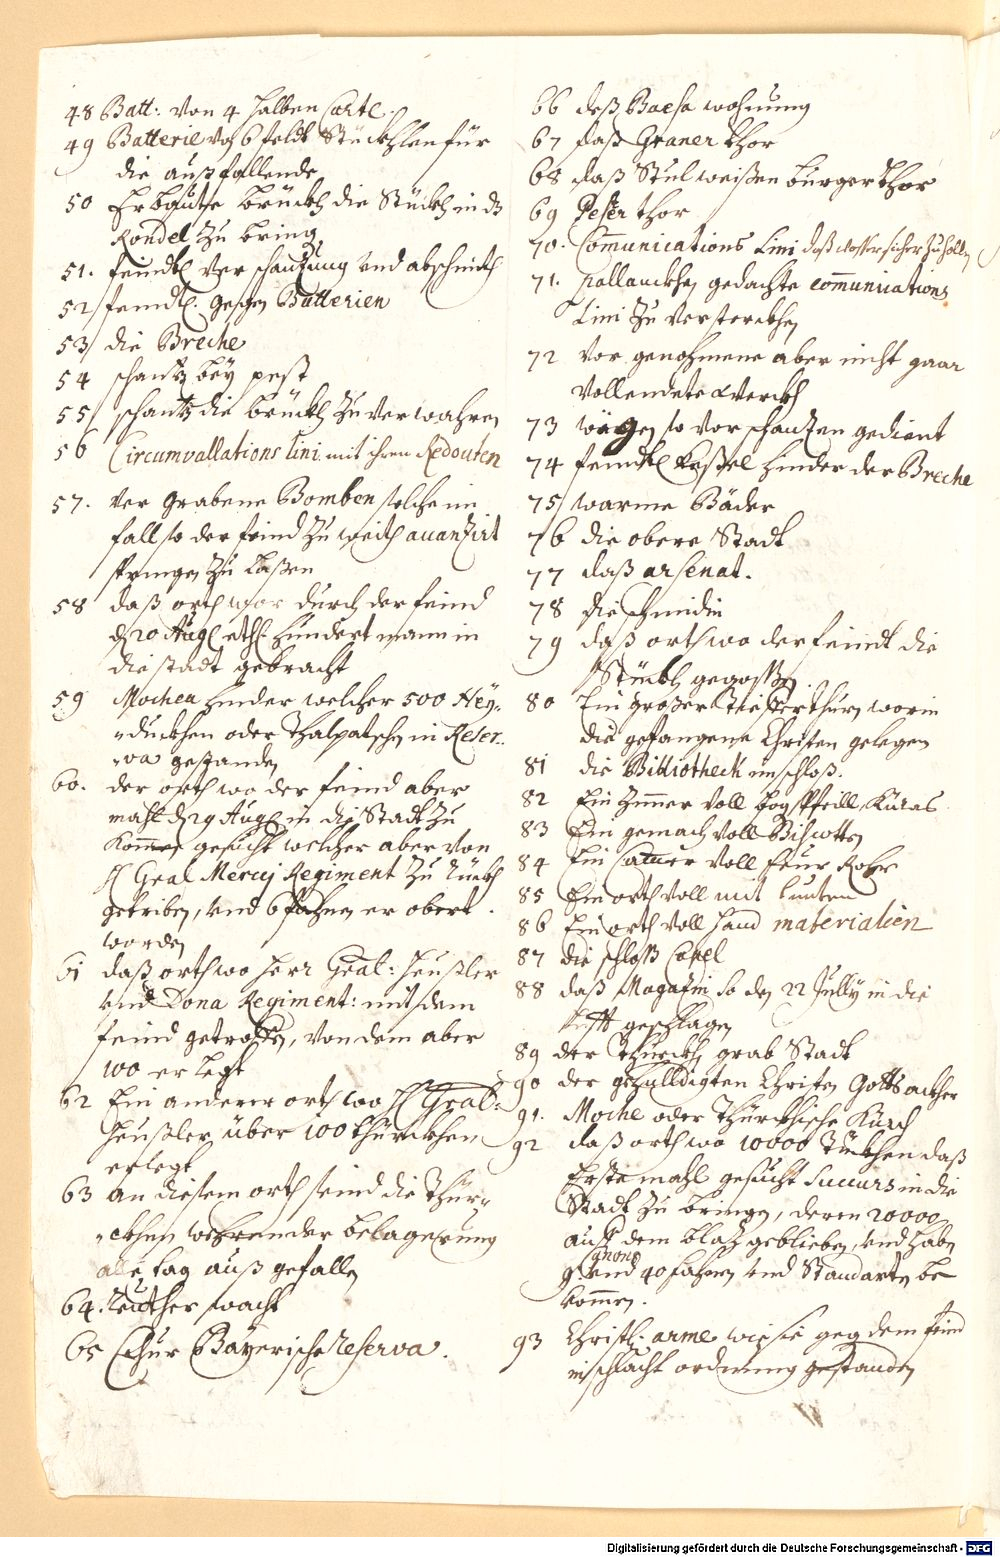 48 Batt: von 4 halben Cartl.
49 Batterie von 6 feldt Stückhlen für
die außfallende
50 Erbaute brückh die Stückh in dz
Rondel zu bring
51. feindtl. verschantzung vnd abschnith
52 feindtl. gegen Batterien
53 die Breche
54 schantz bey pest
55 schantz die brückh zu verwahren
56 Circumvallations lini mit ihren Redouten
57. ver grabene Bomben solche im
fall so der feind zu weith auanzirt
springen zu laßen
58 daß orth durch der feind
den 20 Aug. etl. hundert mann in
die stadt gebracht
59 Mochea hinder welcher 500 Hey-
duckhen oder Thalpatschen in Reser-
va gestanden
60. der orth wo der feind aber
mahl den 29 Aug. in die Stadt zu
kommen gesucht welcher aber von
H Gral Mercij Regiment zu rückh
getriben, vnd 6 fahnen er obert
worden
61 daß orth wo herr Gral: heußler
vnd Dona Regiment: mit dem
feind getroffen, von dem aber
100 er legt
62 Ein anderer orth wo H Gral:
heußler über 100 thürckhen
erlegt
63 an diesem orth seind die Thür-
ckhen wehrender belagerung
alle tag auß gefallen
64. Reuther wacht
65 Chur Bayerische reserva.
66 deß Bassa wohnung
67 daß Graner thor
68 daß Stul weißen burger thor
69 Pester thor
70. Communications Lini daß wasser sicher zu hollen
71. pallanckhen gedachte communications
Lini zu versterckhen
72 vor genohmene aber nicht gaar
vollendete werckh
73 wägen so vor schantzen gedient
74 feindtl. keßel hinder der Breche
75 warme Bäder
76 die obere Stadt
77 daß arsenat.
78 die schmidin
79 daß orth wo der feindt die
Stückh gegossen
80 Ein großer tieffer thurn worin
die gefangene Christen gelegen
81 die Bibliotheck im schloß.
82 Ein Zimer voll bog Pfeill, Küras
83 Ein gemach voll Biscotten
84 Ein Camer voll feur Rohr
85 Ein orth voll mit lunten
86 Ein orth voll hand materialien
87 die schloß Capel
88 daß Magazin so den 22 July in die
lufft geschlagen
89 der Thürckh. grab Stadt
90 der gehulldigten Christen Gotts ackher
91. Moche oder Thürckhische Kürch
92 daß orth wo 10000 Türckhen daß
Erste mahl gesucht Succurs in die
Stadt zu bringen, deren 20000
auff dem blatz geblieben, vnd haben
9 Canons vnd 40 fahnen vnd Standarten be
kommen.
93 Christl. arme wie sie geg dem feind
in schlacht ordnung gestanden
Digitalisierung gefördert durch die Deutsche Forschungsgemeinschaft - DFG